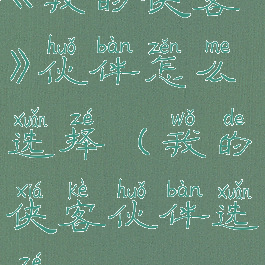 《我的侠客
huǒ bàn zěn me
》伙伴怎么
xuǎn zé wǒ de
选择(我的
xiá kè huǒ bàn xuǎn
侠客伙伴选
zé